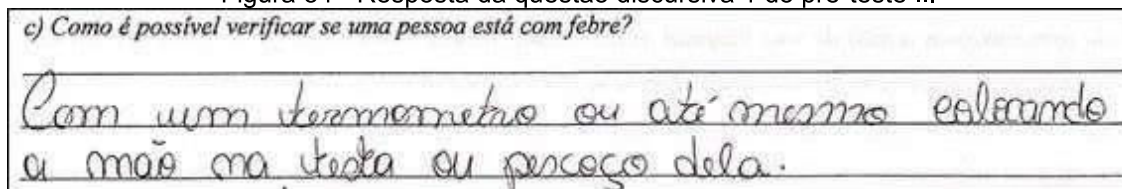 Figura 34 - Resposta da questão discursiva 1 do pré-teste III
c) Como é possível verificar se uma pessoa está com febre?
Com um termometro ou até mesmo colocando
a mão na testa ou pescoço dela.